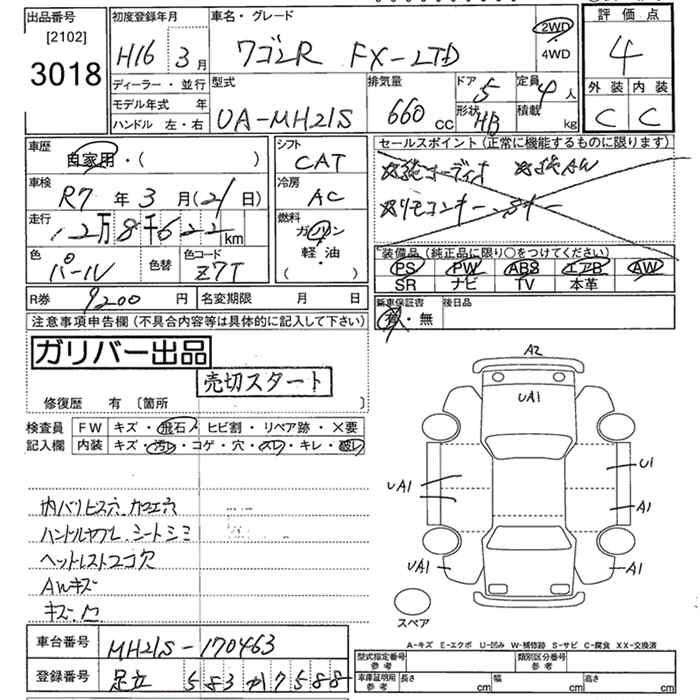 出品番号 [2102] 3018
初度登録年月 H16 3月
車名・グレード ワゴンR FX-LTD
2WD ・ 4WD
評価点 4
外装 内装
C C
ディーラー・並行
モデル年式 年
ハンドル 左・右
型式 UA-MH21S
排気量 660 CC
ドア 5 形状 HB
定員 4人 積載 kg
車歴 自家用・( )
シフト CAT
セールスポイント(正常に機能するものに限ります)
☆純オーディオ ☆純AW
☆リモコンキー Sキー
車検 R7年3月(21日)
冷房 AC
走行 12万8千622km
燃料 ガソリン・軽油 ( )
色 パール 色替 色コード Z7T
装備品(純正品に限り○をつけてください)
PS PW ABS エアB AW
SR ナビ TV 本革
R券 9200円 名変期限 月 日
新車保証書 有・無 後日品
注意事項申告欄(不具合内容等は具体的に記入して下さい)
ガリバー出品
売切スタート
修復歴 有 〔箇所
検査員記入欄 FW キズ・飛石・ヒビ割・リペア跡・×要
内装 キズ・汚レ・コゲ・穴・スレ・キレ・破レ
内バリビス穴 カナエ穴
ハンドルヤブレ シートシミ
ヘッドレストココ穴
AWキズ
キズ凹
A2
UA1
U1
UA1
A1
UA1
A1
スペア
A-キズ E-エクボ U-凹み W-補修跡 S-サビ C-腐食 XX-交換済
車台番号 MH21S-170463
登録番号 足立 583 か 7588
型式指定番号 参考 類別区分番号 参考
車庫証明用 参考 長さ cm 幅 cm 高さ cm